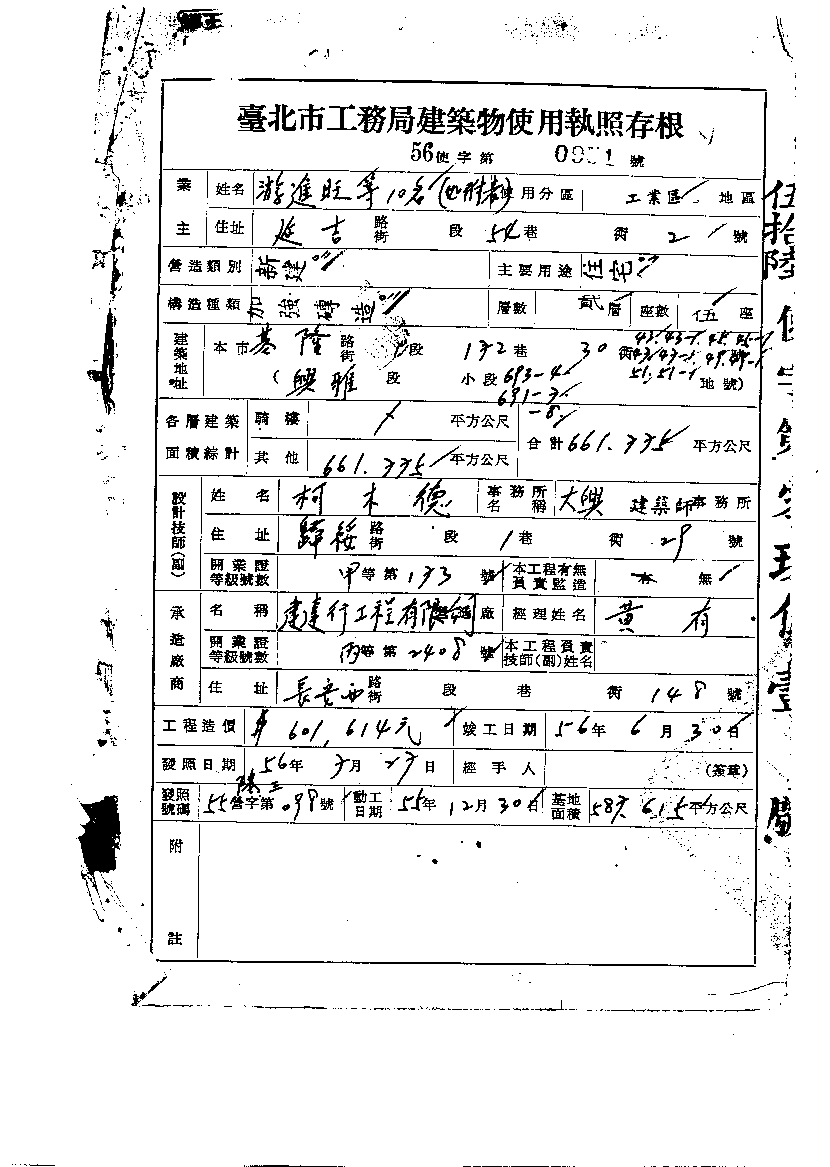 臺北市工務局建築物使用執照存根
56使字第 號
業主 姓名 游進旺等10名 用分區 工業區 地區
住址 延吉 路街 段 54巷 街 2 號
營造類別 新建 主要用途 住宅
構造種類 加強磚造 層數 貳層 座數 伍座
建築地址 本市 基隆 路街 段 132巷 30 街
(興雅段 小段 693-4 地號)
691-3
-8
各層建築面積綜計 騎樓 平方公尺 合計 661.335 平方公尺
其他 661.335 平方公尺
設計技師(副) 姓名 柯木德 事務所名稱 大興 建築師事務所
住址 歸綏 路街 段 1巷 街 29 號
開業證等級號數 甲等第133號 本工程有無負責監造 有 無
承造廠商 名稱 建達行工程有限公司 廠 經理姓名 黃有
開業證等級號數 丙等第2408號 本工程負責技師(副)姓名
住址 長安西 路街 段 巷 街 148 號
工程造價 601,614元 竣工日期 56年6月30日
發照日期 56年 月 日 經手人 (簽章)
發照號碼 55營字第 號 動工日期 55年12月30日 基地面積 平方公尺
附註